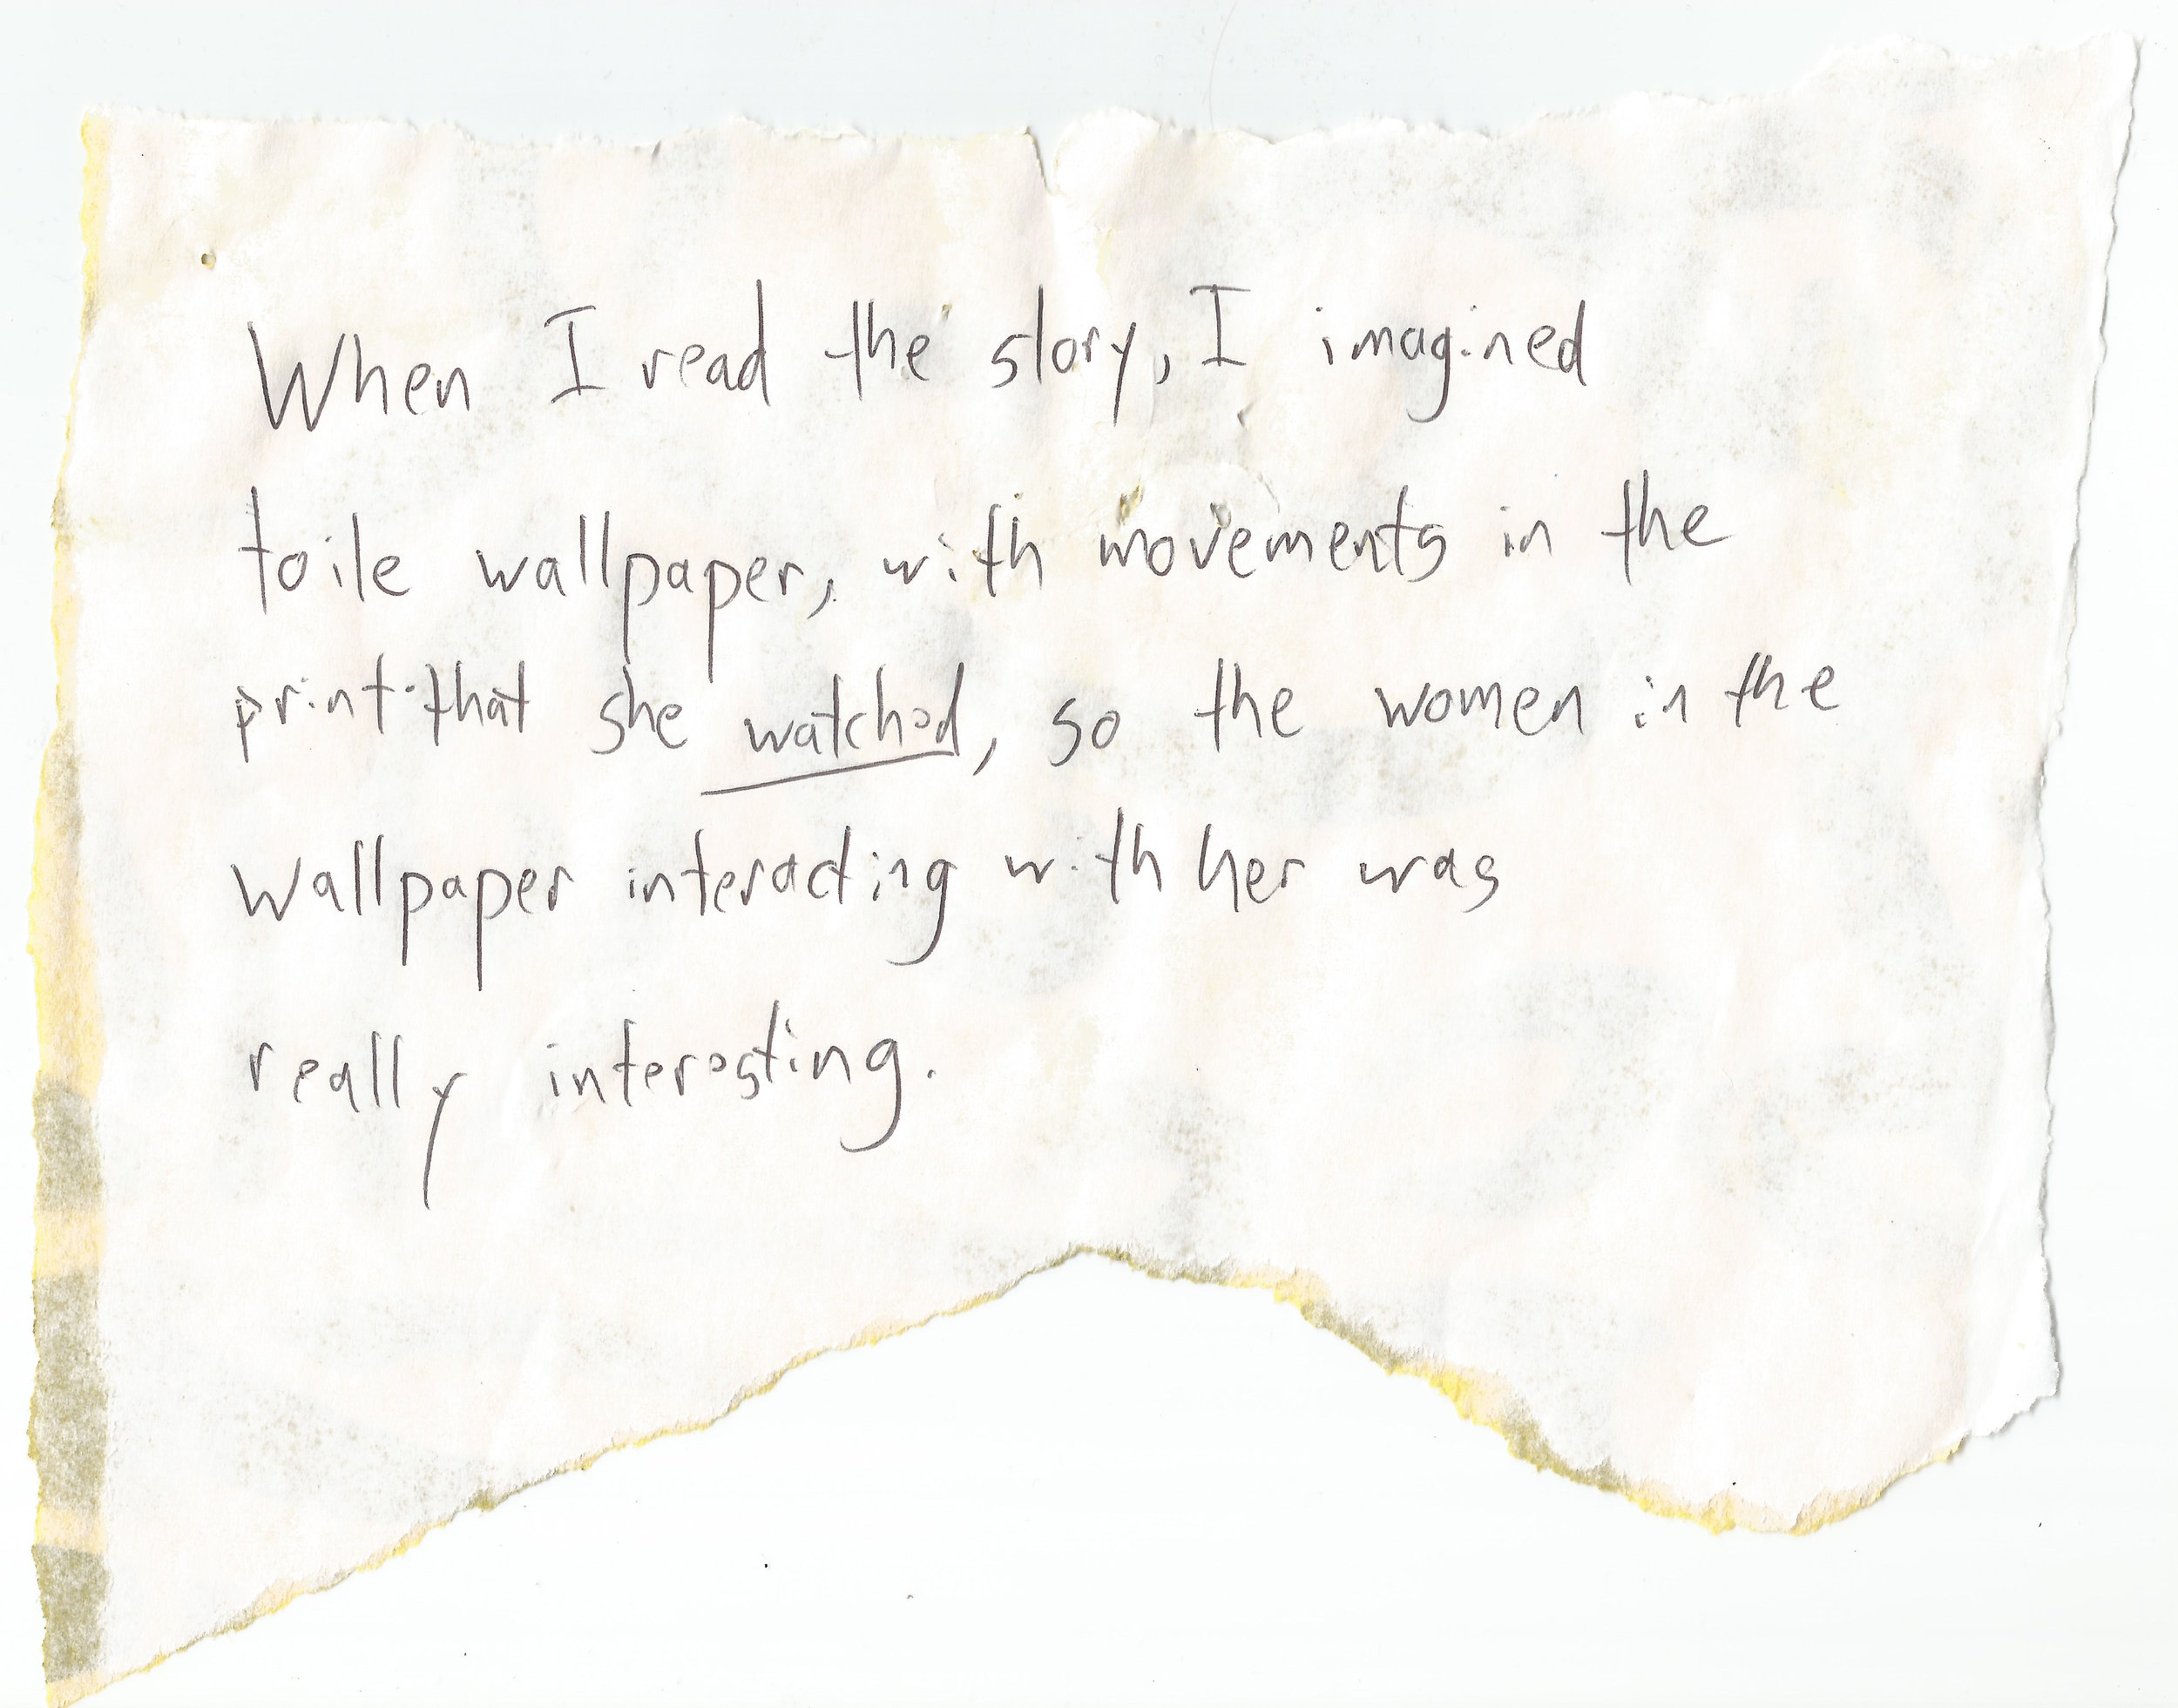 When I read the story, I imagined
toile wallpaper, with movements in the
print that she watched, so the women in the
wallpaper interacting with her was
really interesting.